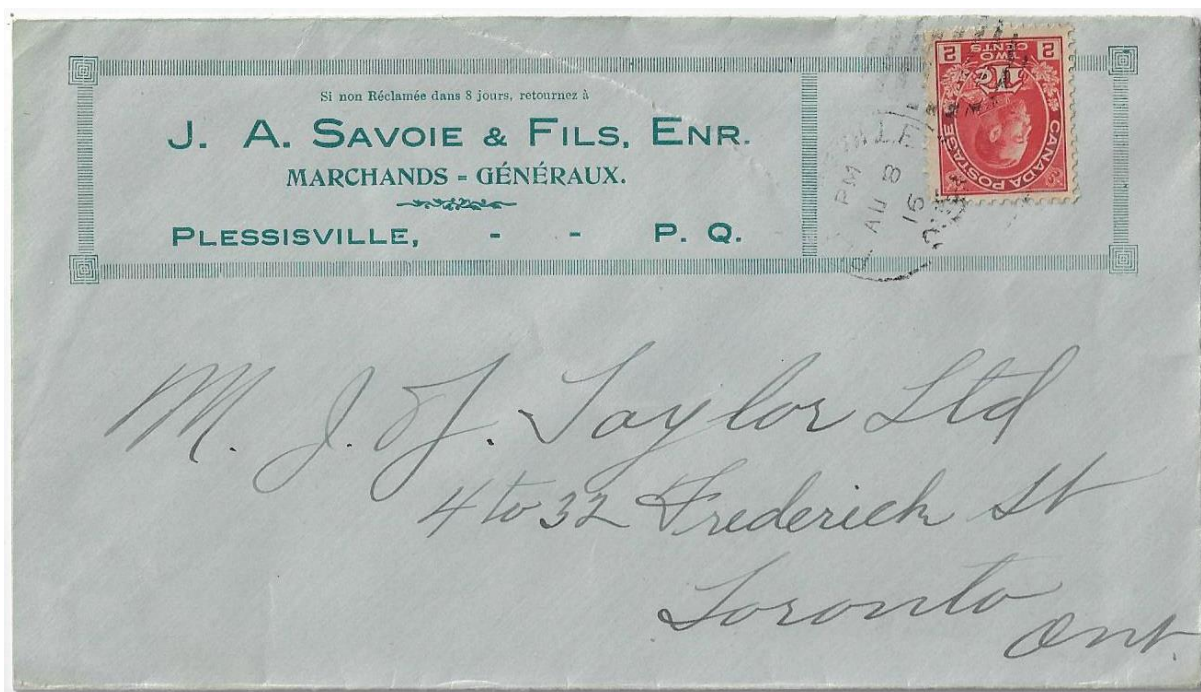 Si non Réclamée dans 8 jours, retournez à
J. A. SAVOIE & FILS, ENR.
MARCHANDS - GÉNÉRAUX.
PLESSISVILLE, - - P. Q.
CANADA POSTAGE
TWO CENTS
2 2
PM
AU 8
16
M. J. & J. Taylor Ltd
4 to 32 Frederick St
Toronto
Ont.